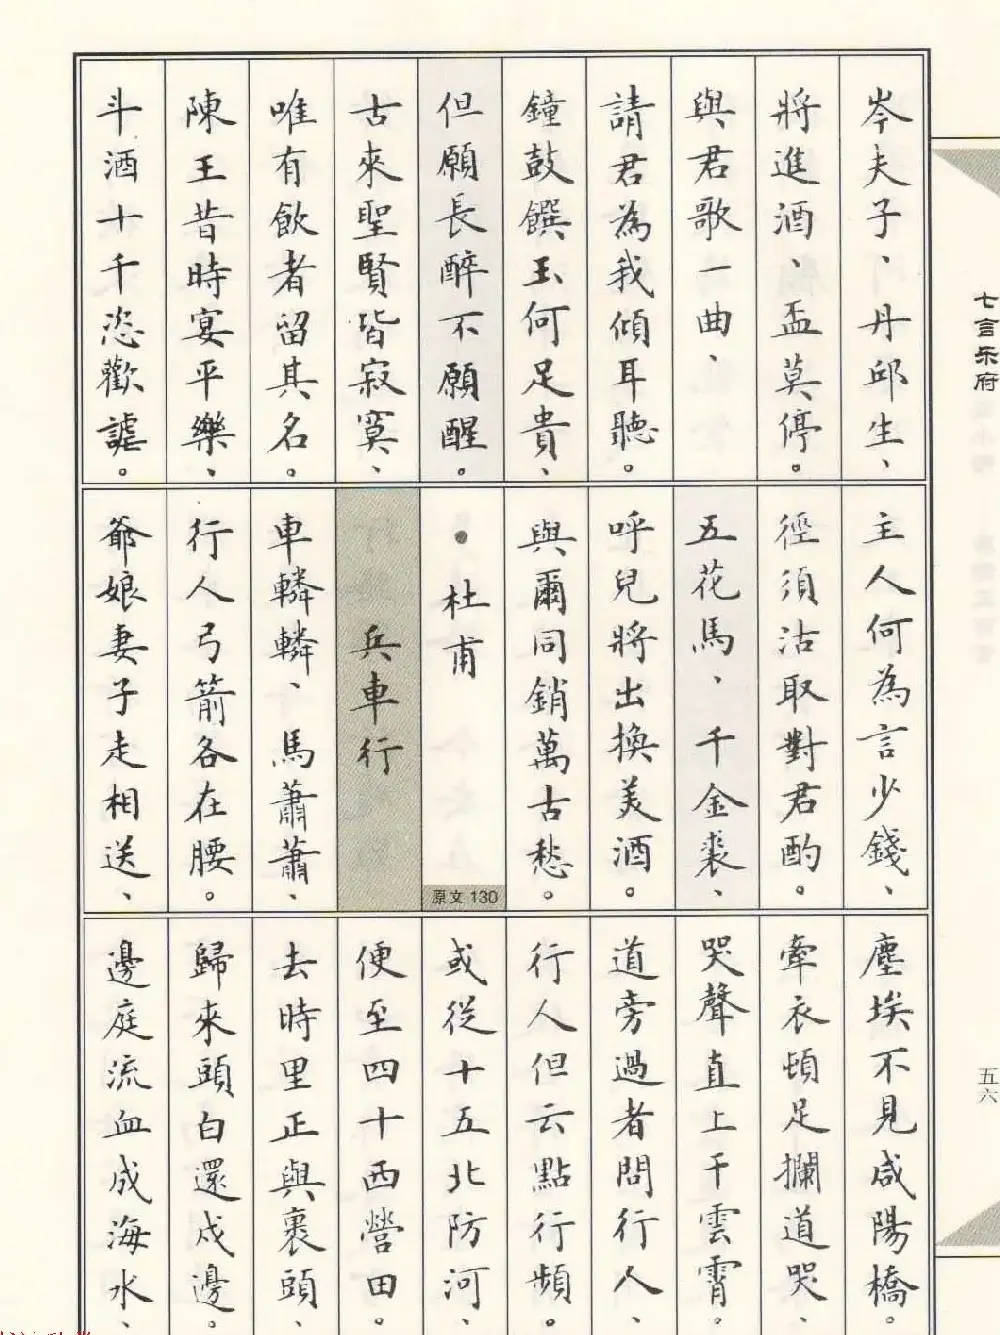 岑夫子、丹邱生、
將進酒、盃莫停。
與君歌一曲、
請君為我傾耳聽。
鐘鼓饌玉何足貴、
但願長醉不願醒。
古來聖賢皆寂寞、
唯有飲者留其名。
陳王昔時宴平樂、
斗酒十千恣歡謔。
主人何為言少錢、
徑須沽取對君酌。
五花馬、千金裘、
呼兒將出換美酒。
與爾同銷萬古愁。
•杜甫
原文130
兵車行
車轔轔、馬蕭蕭、
行人弓箭各在腰。
爺娘妻子走相送、
塵埃不見咸陽橋。
牽衣頓足攔道哭、
哭聲直上干雲霄。
道旁過者問行人、
行人但云點行頻。
或從十五北防河、
便至四十西營田。
去時里正與裹頭、
歸來頭白還戍邊。
邊庭流血成海水、
七言乐府
五六